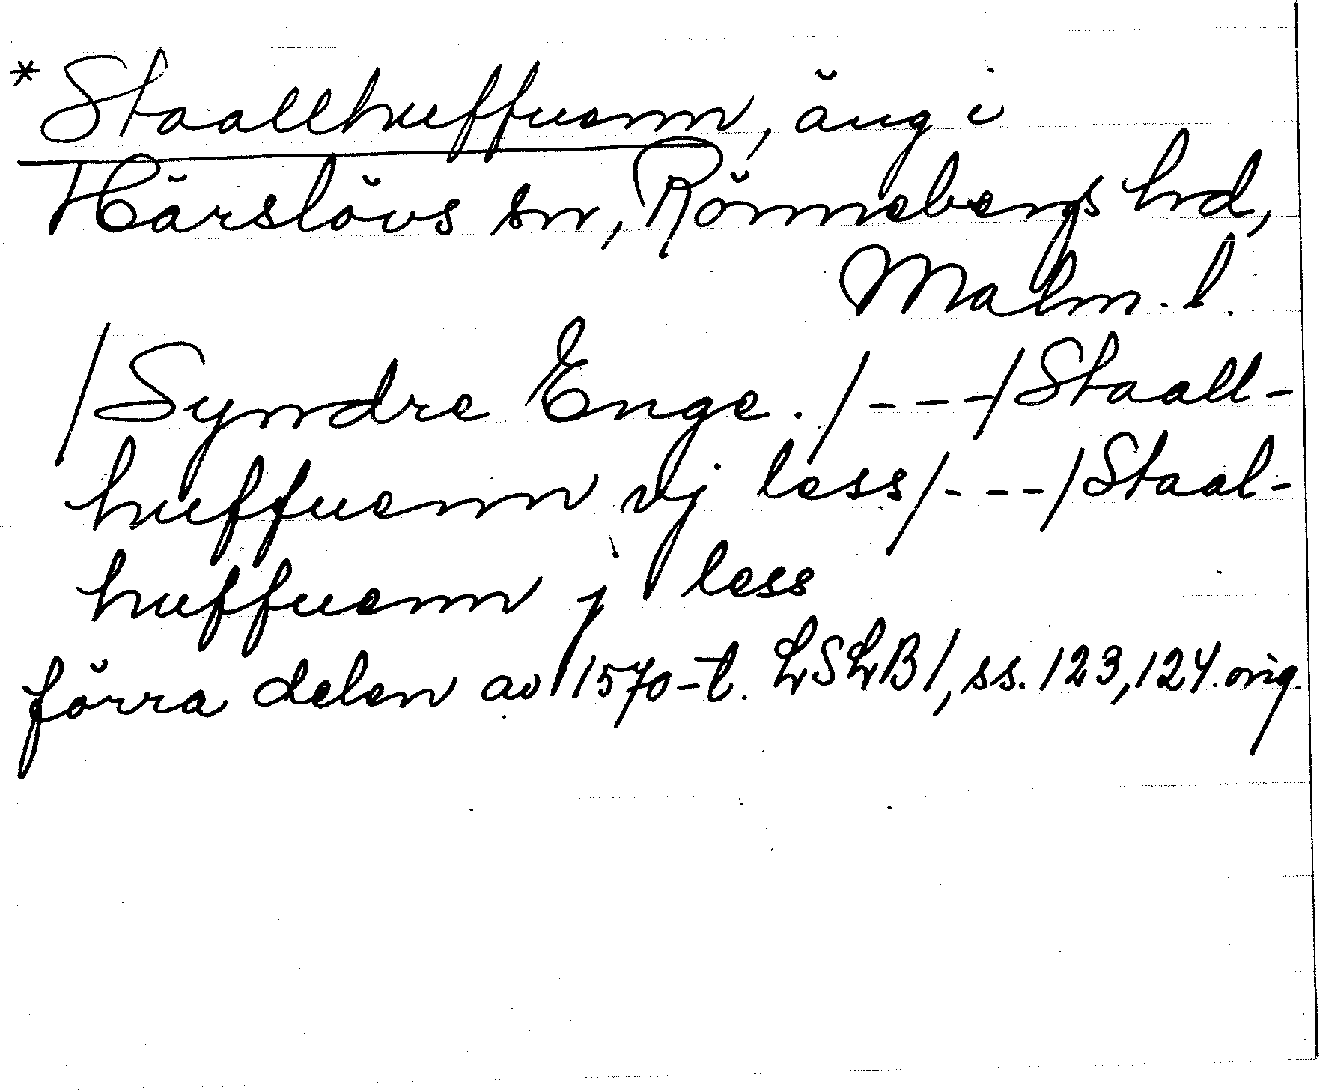 *Staallhuffuenn, äng i
Härslövs sn, Rönnebergs hd,
Malm. l.
/Syndre Enge./---/Staall-
huffuenn vj less/---/Staal-
huffuenn j less
förra delen av 1570-t. LSLB1, ss. 123, 124. orig.